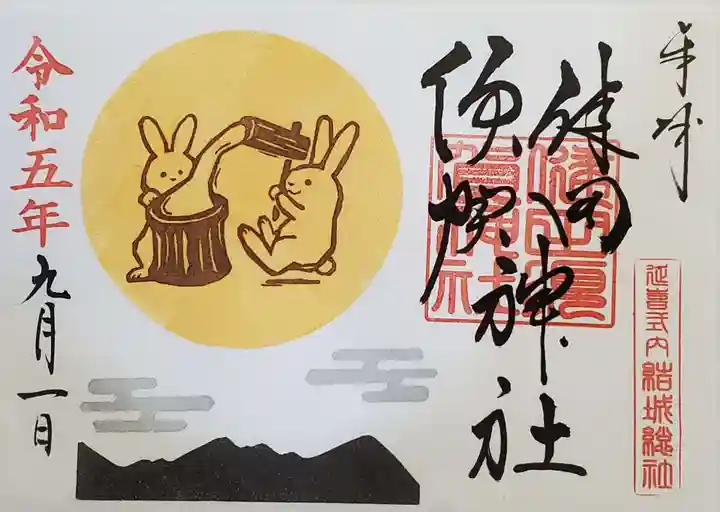 奉拝
健田
須賀
神社
延喜式内 結城総社
令和五年
九月一日